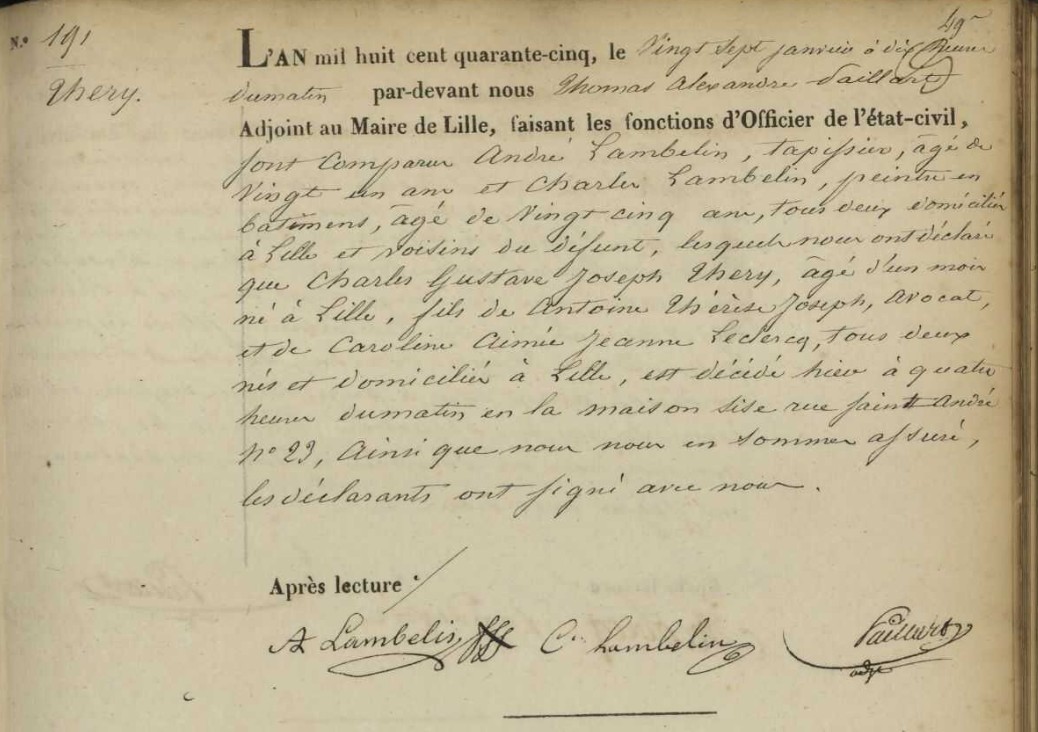 49
N.º 191
Thery.
L'AN mil huit cent quarante-cinq, le Vingt Sept janvier à dix heures
dumatin par-devant nous Thomas Alexandre Paillart
Adjoint au Maire de Lille, faisant les fonctions d'Officier de l'état-civil,
sont comparus André Lambelin, tapissier, âgé de
Vingt un ans et Charles Lambelin, peintre en
batimens, âgé de Vingt cinq ans, tous deux domiciliés
à Lille et voisins du défunt, lesquels nous ont déclaré
que Charles Gustave Joseph Thery, âgé d'un mois
né à Lille, fils de Antoine Thérèse Joseph, avocat,
et de Caroline Aimée Jeanne Leclercq, tous deux
nés et domiciliés à Lille, est décédé hier à quatre
heures dumatin en la maison sise rue saint André
nº 23, Ainsi que nous nous en sommes assuré,
les déclarants ont signé avec nous.
Après lecture
A Lambelin Ch Lambelin Paillart
adjt